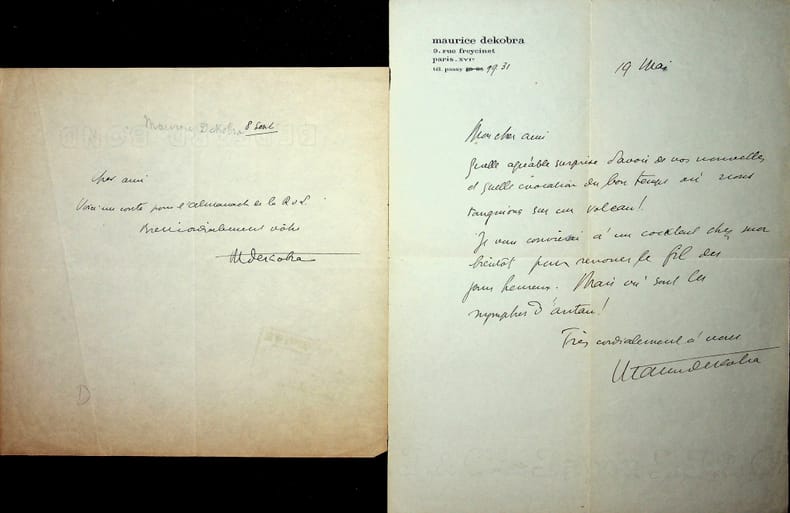 Maurice Dekobra 8 Sept
Cher ami
Voici un conte pour l'almanach de la R d L
Bien cordialement vôtre
MDekobra
D
maurice dekobra
9. rue freycinet
paris. XVIe
tél. passy 99.31
19 Mai
Mon cher ami
Quelle agréable surprise d'avoir de vos nouvelles
et quelle évocation du bon temps où nous
tanguions sur un volcan!
Je vous convierai à un cocktail chez moi
bientôt pour renouer le fil des
jours heureux. Mais où sont les
nymphes d'antan!
Très cordialement à vous
Maurice Dekobra